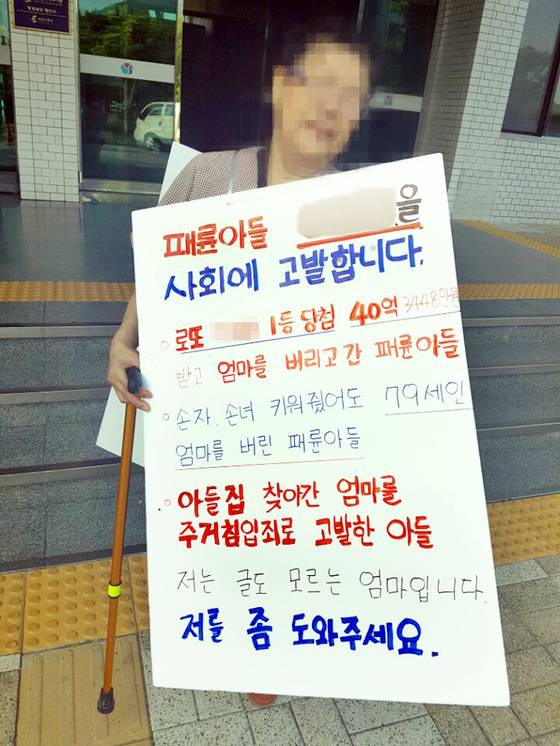 패륜아들 을
사회에 고발합니다.
로또 1등 당첨 40억 3448만원
받고 엄마를 버리고 간 패륜아들
손자. 손녀 키워줬어도 79세인
엄마를 버린 패륜아들
아들집 찾아간 엄마를
주거침입죄로 고발한 아들
저는 글도 모르는 엄마입니다.
저를 좀 도와주세요.